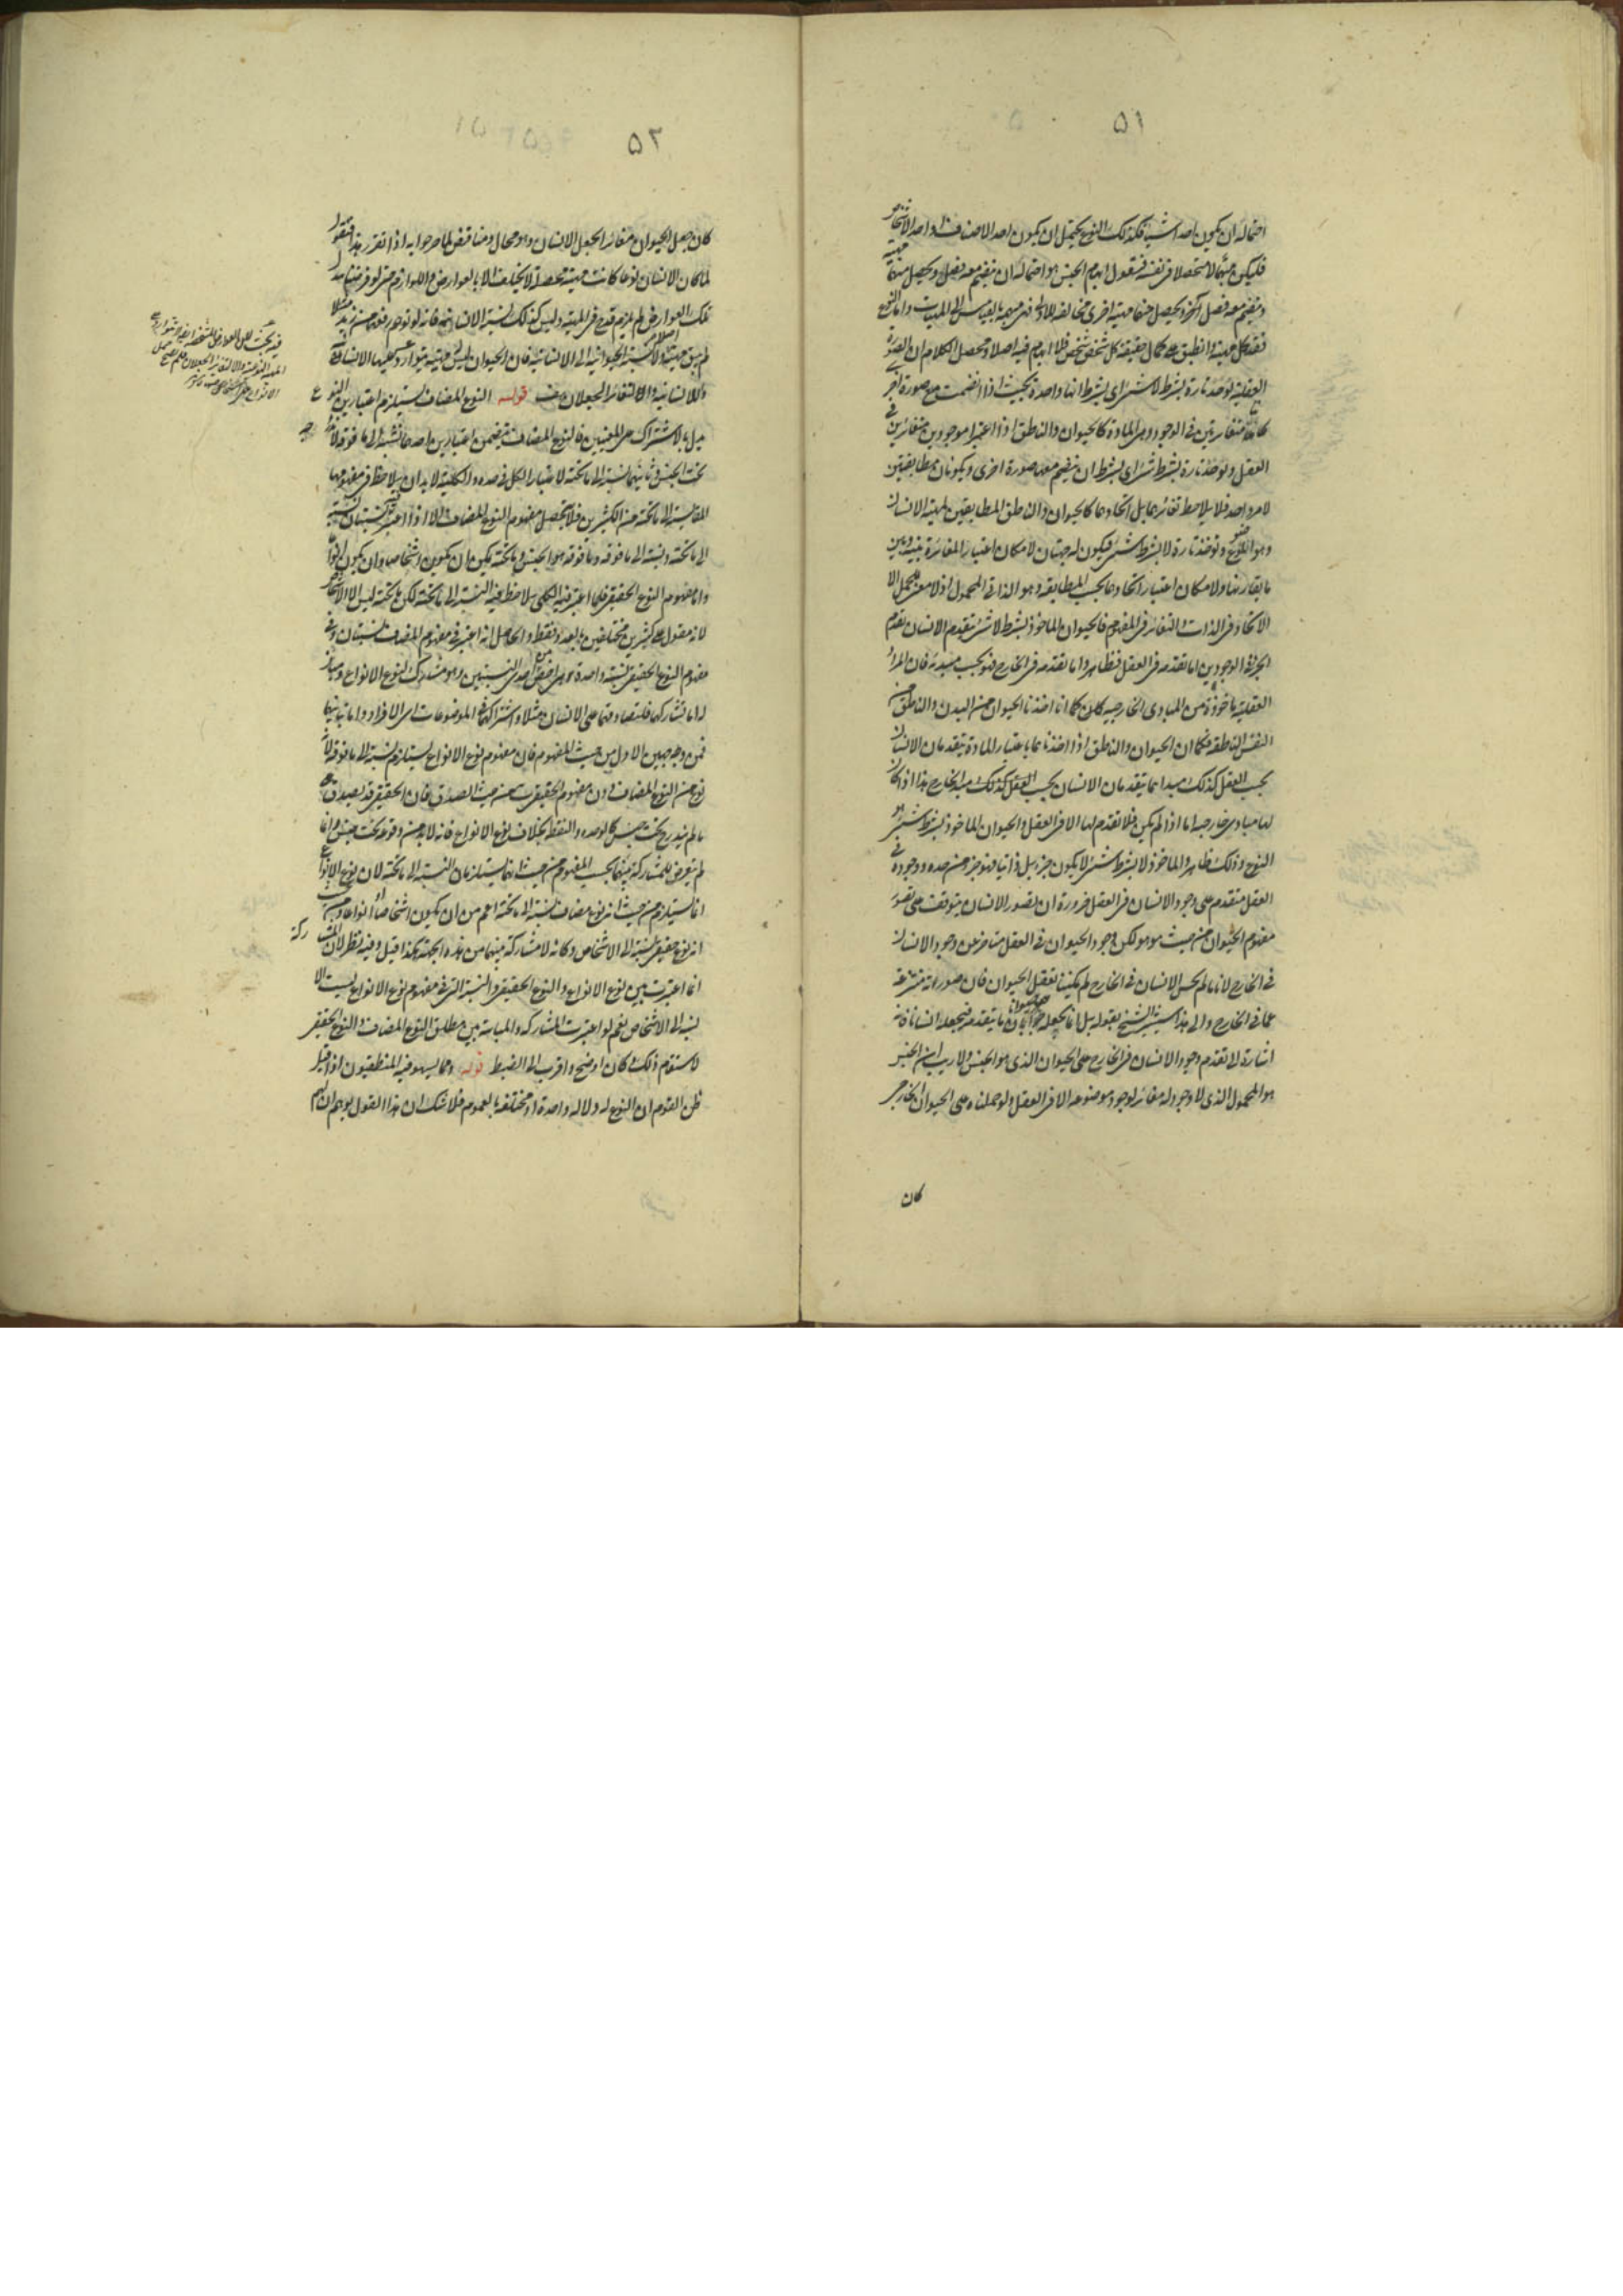 ٥١
احتماله ان يكون احد اشياء فكذلك النوع يحتمل ان يكون احد الاصناف واحد الاشخاص
فليكن مبهما لا متحصلا في نفسه فنقول ابهام الجنس هو احتماله ان ينضم معه فصل ويحصل منهما مهية
وينضم معه فصل آخر ويحصل منهما مهية اخرى مخالفة للاولى فهي مبهمة بالقياس الى المهيات واما النوع
فقد كمل مهيته وانطبق على كمال حقيقة كل شخص شخص فلا ابهام فيه اصلا ومحصل الكلام ان الصورة
العقلية تؤخذ تارة بشرط لا شيء اى بشرط انها واحدة بحيث اذا انضمت مع صورة اخرى
كانتا متغايرتين فى الوجود وهى المادة كالحيوان والناطق اذا اعتبرا موجودين متغايرين فى
العقل وتؤخذ تارة بشرط شىء اى بشرط ان ينضم معها صورة اخرى ويكونان مطابقتين
لامر واحد فلا يلاحظ تغايرهما بل اتحادهما كالحيوان والناطق المطابقين لمهية الانسان
وهو النوع وتؤخذ تارة لا بشرط شىء فيكون له جهتان لامكان اعتبار المغايرة بينه وبين
ما يقارنها ولامكان اعتبار اتحادهما بحسب المطابقة وهو الذاتى المحمول اذ لا معنى للحمل الا
الاتحاد فى الذات والتغاير فى المفهوم فالحيوان الماخوذ بشرط لا شىء يتقدم الانسان تقدم
الجزء فى الوجودين اما تقدمه فى العقل فظاهر واما تقدمه فى الخارج فهو بحسب مبدئه فان المراد
العقلية ماخوذة من المبادى الخارجية كان كما انا اخذنا الحيوان من البدن والناطق من
النفس الناطقة فكما ان الحيوان والناطق اذا اخذناهما باعتبار المادة يتقدمان الانسان
بحسب العقل كذلك مبداهما يتقدمان الانسان بحسب العقل كذلك مبدا الخارج هذا اذا كان
لها مبادى خارجية اما اذا لم يكن فلا تقدم لها الا فى العقل والحيوان الماخوذ بشرط شىء هو
النوع وذلك ظاهر والماخوذ لا بشرط شىء لا يكون جزء بل ذاتيا فهو جزء من حده ووجوده فى
العقل متقدم على وجود الانسان فى العقل ضرورة ان تصور الانسان يتوقف على تصور
مفهوم الحيوان من حيث هو هو لكن وجود الحيوان فى العقل متاخر عن وجود الانسان
فى الخارج لانا ما لم نحس الانسان فى الخارج لم يمكننا تعقل الحيوان فان صورته منتزعة
عما فى الخارج والى هذا يشير الشيخ بقوله بل انما يجعله حيوانا ما يتقدمه فيجعله انسانا فانه
اشارة الى تقدم وجود الانسان فى الخارج على الحيوان الذى هو الجنس ولا ريب ان الجنس
هو المحمول الذى لا وجود له مغاير لوجود موضوعه الا فى العقل ولو حملناه على الحيوان الخارجى
كان
٥٢
كان جعل الحيوان مغاير الجعل الانسان وهو محال ومناقض لما صرحوا به اذا تقرر هذا فنقول
لما كان الانسان نوعا كانت مهيته محصلة لا يختلف الا بالعوارض واللوازم حتى لو فرضنا تبدل
تلك العوارض لم يلزم قدح فى المهية وليس كذلك نسبة الانسانية فانه لو توهم رفعها من زيد مثلا
لم يبق مهيته اصلا ولا نسبة الحيوانية الى الانسانية فان الحيوان ليس مهية يتوارد عليها الانسانية
واللاانسانية والا لتغاير الجعلان هف قوله النوع المضاف يستلزم اعتبارين النوع
يقال بالاشتراك على المعنيين فالنوع المضاف يتضمن اعتبارين احدهما نسبة الى ما فوقه لاندراجه
تحت الجنس وثانيهما نسبة الى ما تحته لاعتبار الكلى فى حده والكلية لا بد ان يلاحظ فى مفهومها
المقايسة الى ما تحته من الكثيرين فلا يتحصل مفهوم النوع المضاف الا اذا اعتبر فيه نسبتان نسبة
الى ما تحته ونسبة الى ما فوقه وما فوقه هو الجنس وما تحته يمكن ان يكون اشخاصا وان يكون انواعا
واما مفهوم النوع الحقيقى فلما اعتبر فيه الكلى يلاحظ فيه النسبة الى ما تحته لكن ما تحته ليس الا الاشخاص
لانه مقول على كثيرين مختلفين بالعدد فقط والحاصل انه اعتبر فى مفهوم المضاف نسبتان وفى
مفهوم النوع الحقيقى نسبة واحدة هى اخص من احدى النسبتين وهو مشارك لنوع الانواع ومباين
له اما تشاركهما فلتصادقهما على الانسان مثلا واشتراكهما فى الموضوعات اى الافراد واما تباينهما
فمن وجهين الاول من حيث المفهوم فان مفهوم نوع الانواع يستلزم نسبة الى ما فوقه لانه
نوع من النوع المضاف دون مفهوم الحقيقى من حيث الصدق فان الحقيقى قد يصدق على
ما لم يندرج تحت جنس كالوحدة والنقطة بخلاف نوع الانواع فانه لا بد من وقوعه تحت جنس وانما
لم يتعرض للمشاركة بينهما بحسب المفهوم من حيث انهما يستلزمان النسبة الى ما تحته لان نوع الانواع
انما يستلزم من حيث انه نوع مضاف نسبة الى ما تحته اعم من ان يكون اشخاصا او انواعا ومن حيث
انه نوع حقيقى نسبة الى الاشخاص وكانه لا مشاركة بينهما من هذه الجهة هكذا قيل وفيه نظر لان المشاركة
انما اعتبرت بين نوع الانواع والنوع الحقيقى والنسبة التى فى مفهوم نوع الانواع ليست الا
نسبة الى الاشخاص نعم لو اعتبرت المشاركة والمباينة بين مطلق النوع المضاف والنوع الحقيقى
لاستقام ذلك وكان اوضح واقرب الى الضبط قوله ومما يسهو فيه المنطقيون اذا قيل
ظن القوم ان النوع له دلالة واحدة او مختلفة بالعموم فلا شك ان هذا القول يوهم ان لهم